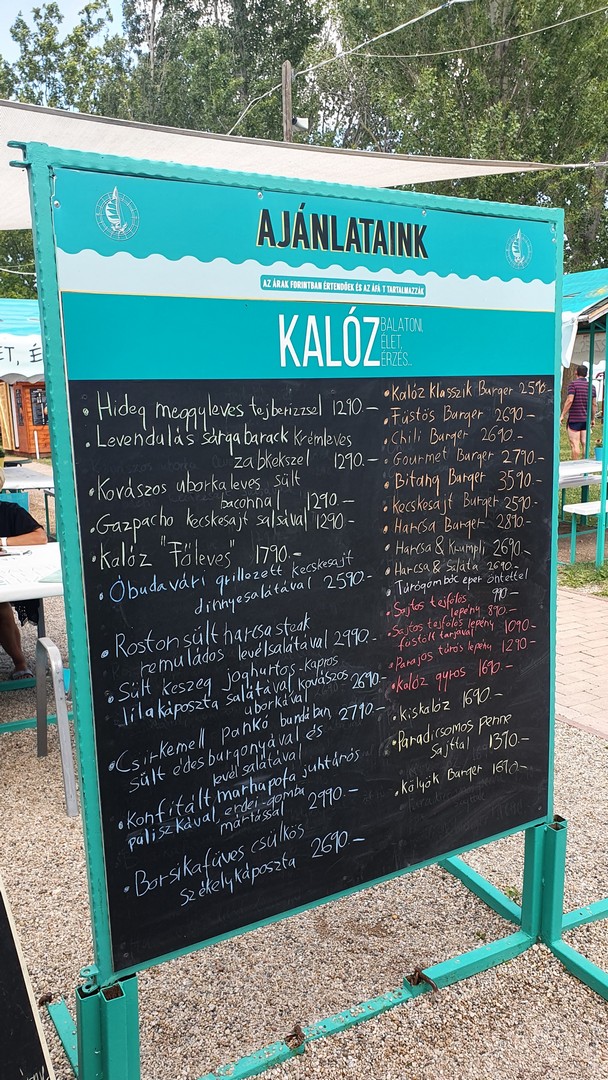 AJÁNLATAINK
AZ ÁRAK FORINTBAN ÉRTENDŐEK ÉS AZ ÁFÁ T TARTALMAZZÁK
KALÓZ
BALATONI,
ÉLET,
ÉRZÉS...
• Hideg meggyleves tejberizzsel 1290.-
• Levendulás sárgabarack krémleves
zabkeksze​l 1290.-
• Kovászos uborkaleves sült
baconnal 1290.-
• Gazpacho kecskesajt salsával 1290-
• Kalóz "Főleves" 1790.-
• Óbudavári grillezett kecskesajt
dinnyesalátával 2590.-
• Roston sült harcsa steak
remuládos levélsalátával 2990.-
• Sült keszeg joghurtos-kapros
lilakáposzta salátával, kovászos 2690.-
uborkával
• Csirkemell Pankó bundában, 2790.-
sült édesburgonyával és
levél salátával
• Konfitált marhapofa juhtúrós
puliszkával, erdei-gomba
mártással 2990.-
• Borsikafüves csülkös
székelykáposzta 2690.-
• Kalóz Klasszik Burger 2590-
• Füstös Burger 2690.-
• Chili Burger 2690.-
• Gourmet Burger 2790.-
• Bitang Burger 3590.-
• Kecskesajt Burger 2590-
• Harcsa Burger 2890.-
• Harcsa & Krumpli 2690.-
• Harcsa & Saláta 2690.-
• Túrógombóc eper öntettel
990.-
• Sajtos tejfölös
lepény 890.-
• Sajtos tejfölös lepény 1090.-
füstölt tarjával
• Parajos túrós lepény 1290-
• Kalóz gyros 1690.-
• kiskalóz 1690.-
• Paradicsomos penne
sajttal 1390.-
• Kölyök Burger 1690.-